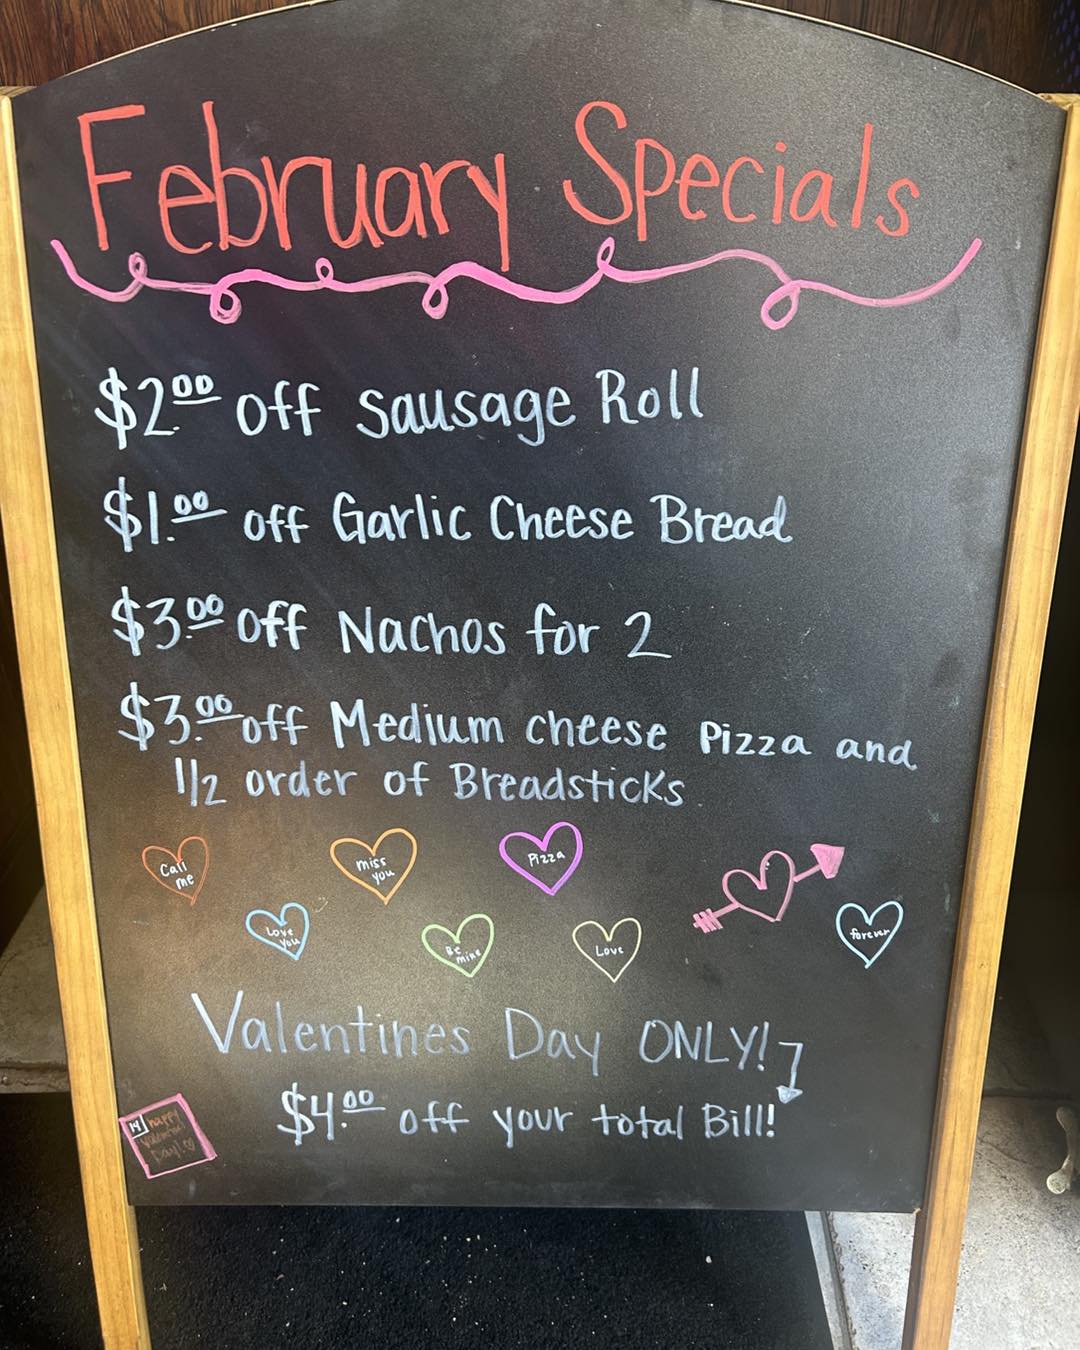 February Specials
$2.00 off sausage Roll
$1.00 off Garlic Cheese Bread
$3.00 off Nachos for 2
$3.00 off Medium cheese Pizza and
1/2 order of Breadsticks
Call
me
miss
you
Pizza
Love
you
Be
mine
Love
forever
Valentines Day ONLY!
$4.00 off your total Bill!
14
happy
Day!